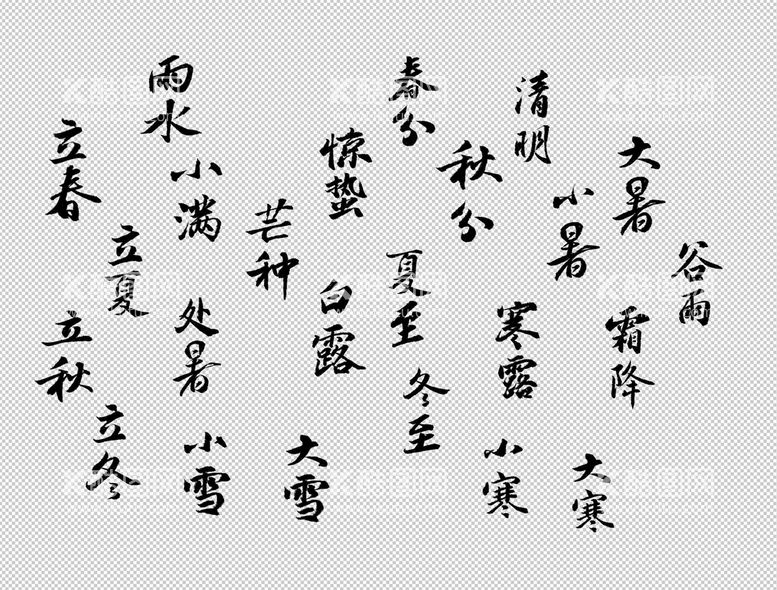 立春
雨水
惊蛰
春分
清明
谷雨
立夏
小满
芒种
夏至
小暑
大暑
立秋
处暑
白露
秋分
寒露
霜降
立冬
小雪
大雪
冬至
小寒
大寒